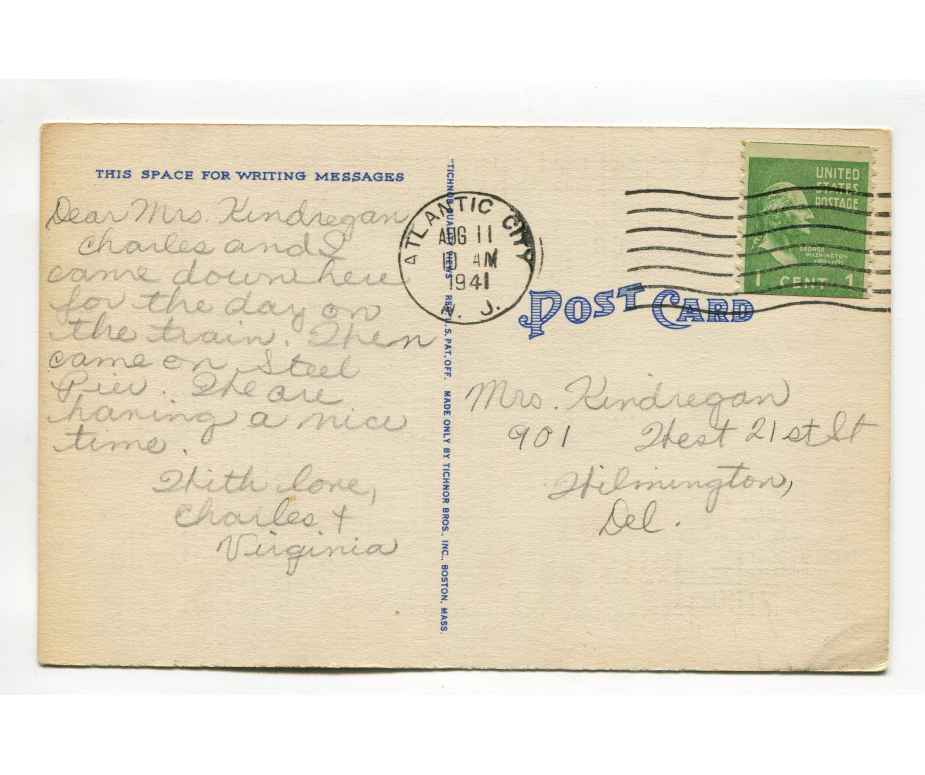 THIS SPACE FOR WRITING MESSAGES
Dear Mrs. Kindregan
Charles and I
came down here
for the day on
the train. Then
came on Steel
Pier. We are
having a nice
time.
With love,
Charles &
Virginia
ATLANTIC CITY
AUG 11
AM
1941
N. J.
REG. U.S. PAT. OFF. MADE ONLY BY TICHNOR BROS., INC., BOSTON, MASS.
UNITED
STATES
POSTAGE
GEORGE
WASHINGTON
1 CENT 1
POST CARD
Mrs. Kindregan
901 West 21st St
Wilmington,
Del.